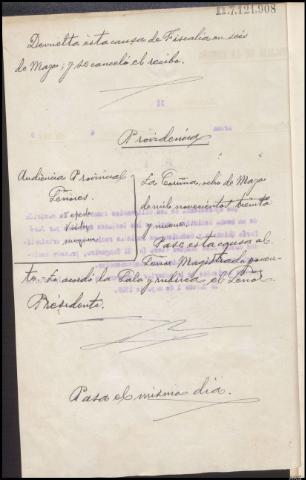 11.7.121.908
Devuelta esta causa de Fiscalia en seis
de Mayo; y se canceló el recibo.
Providencia
Audiencia Provincial
Señores.
Tejedo
La Coruña, ocho de Mayo
de mil novecientos treinta
y nueve.
Pase esta causa al
Señor Magistrado ponen-
te. Lo acordó la Sala y rubrica el Señor
Presidente.
Pasa el mismo dia.